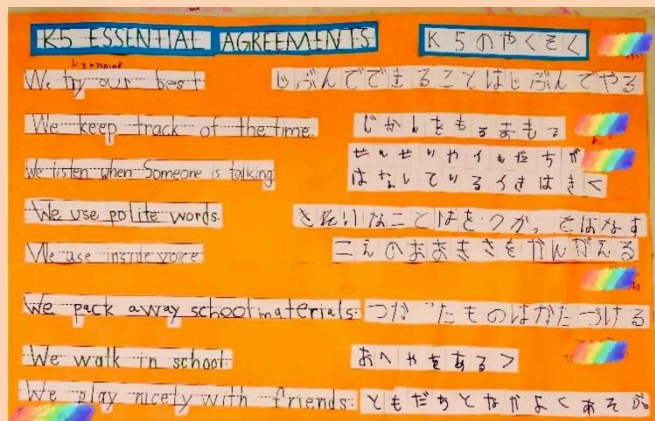 K5 ESSENTIAL AGREEMENTS K5のやくそく
We try our best じぶんでできることはじぶんでやる
We keep track of the time. じかんをまもる
We listen when Someone is talking
はなしているときはきく
We use polite words. きれいなことばをつかってはなす
We use inside voice こえのおおきさをかんがえる
We pack away school materials. つかったものはかたづける
We walk in school おへやをあるく
We play nicely with friends ともだちとなかよくあそぶ